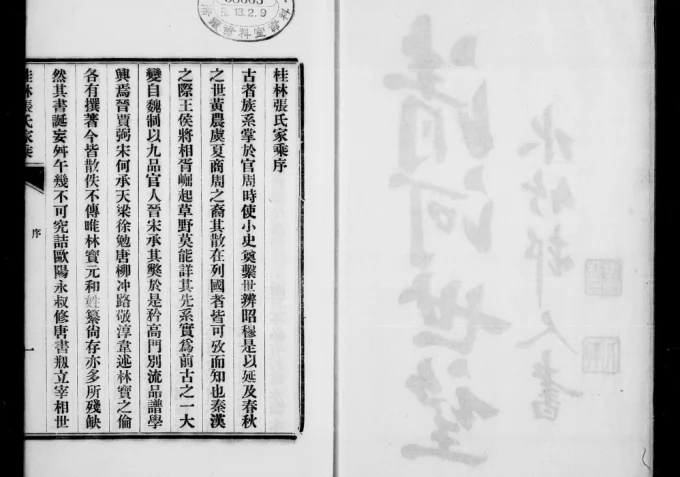 清河世望
水竹邨人書
13.2.9
桂林張氏家乘序
古者族系掌於官周時使小史奠繫世辨昭穆是以延及春秋
之世黃農虞夏商周之裔其散在列國者皆可攷而知也秦漢
之際王侯將相胥崛起草野莫能詳其先系實爲前古之一大
變自魏制以九品官人晉宋承其獘於是矜高門別流品譜學
興焉晉賈弼宋何承天梁徐勉唐柳冲路敬淳韋述林寶之倫
各有撰著今皆散佚不傳唯林寶元和姓纂尙存亦多所殘缺
然其書誕妄舛午幾不可究詰歐陽永叔修唐書瓶立宰相世
桂林張氏家乘
序
一